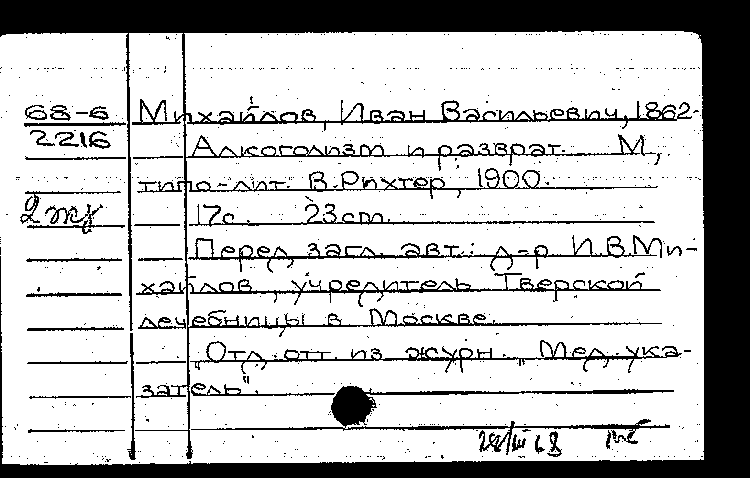 68-6 Михайлов, Иван Васильевич, 1862-
2216 Алкоголизм и разврат. М,
типо-лит. В.Рихтер, 1900.
17с. 23cm.
Перед загл. авт.: д-р И.В.Ми-
хайлов, учредитель Тверской
лечебницы в Москве.
"Отд. отт. из журн. "Мед. ука-
затель".
28/III 68